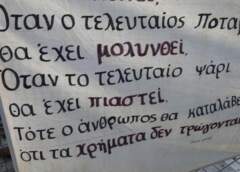 Όταν ο τελευταίος ποτα
θα έχει μολυνθεί.
Όταν το τελευταίο ψάρι
θα έχει πιαστεί.
Τότε ο άνθρωπος θα καταλάβε
ότι τα χρήματα δεν τρώγονται